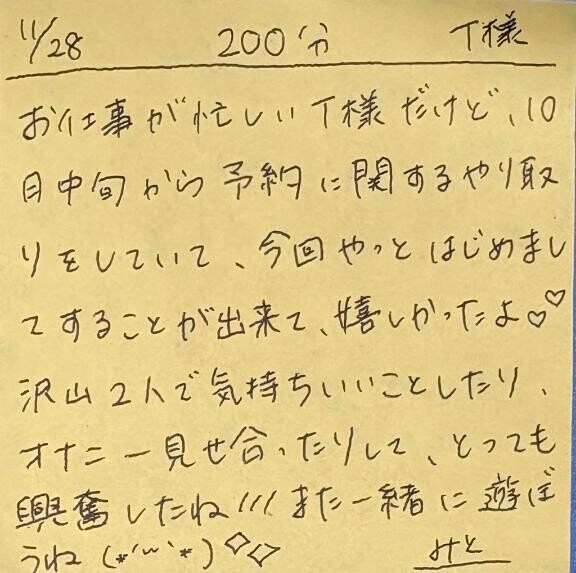 11/28 200分 T様
お仕事が忙しいT様だけど、10
月中旬から予約に関するやり取
りをしていて、今回やっとはじめまし
てすることが出来て、嬉しかったよ♡♡
沢山2人で気持ちいいことしたり、
オナニー見せ合ったりして、とっても
興奮したね!!! また一緒に遊ぼ
うね (*'ω'*) ◇◇ みと